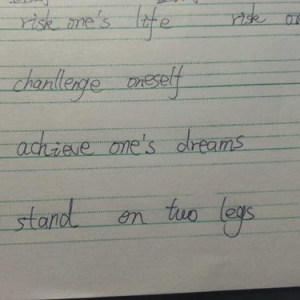 risk one's life risk
chanllenge oneself
achieve one's dreams
stand on two legs